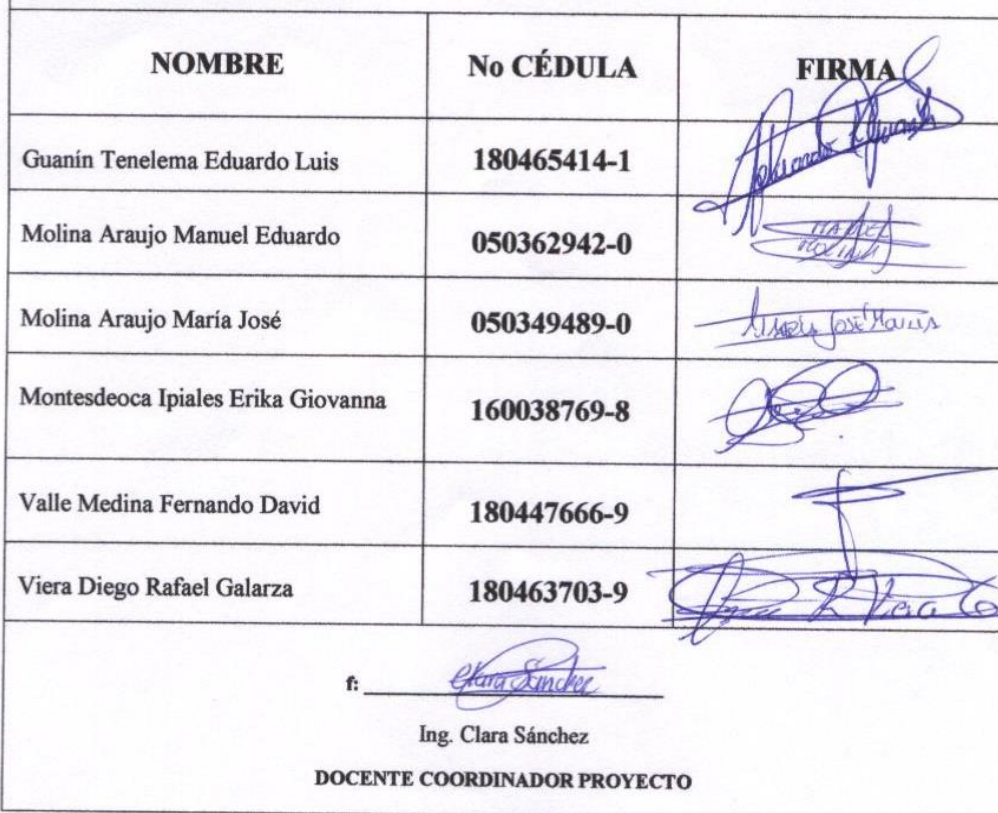 NOMBRE No CÉDULA FIRMA
Guanín Tenelema Eduardo Luis 180465414-1
Molina Araujo Manuel Eduardo 050362942-0 MANUEL
MOLINA
Molina Araujo María José 050349489-0 María José
Montesdeoca Ipiales Erika Giovanna 160038769-8
Valle Medina Fernando David 180447666-9
Viera Diego Rafael Galarza 180463703-9 R Viera G
f: Clara Sánchez
Ing. Clara Sánchez
DOCENTE COORDINADOR PROYECTO